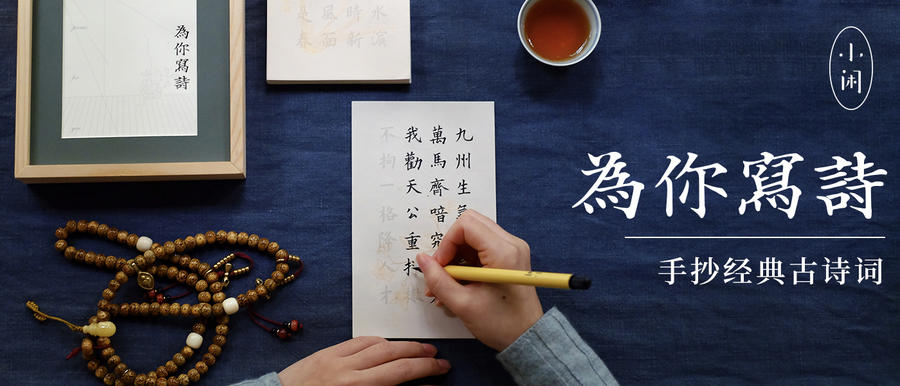 為你寫詩
水濱
時新
風面
是春
九州生
萬馬齊喑究
我勸天公重抖
不拘一格降人才
小闲
為你寫詩
手抄经典古诗词